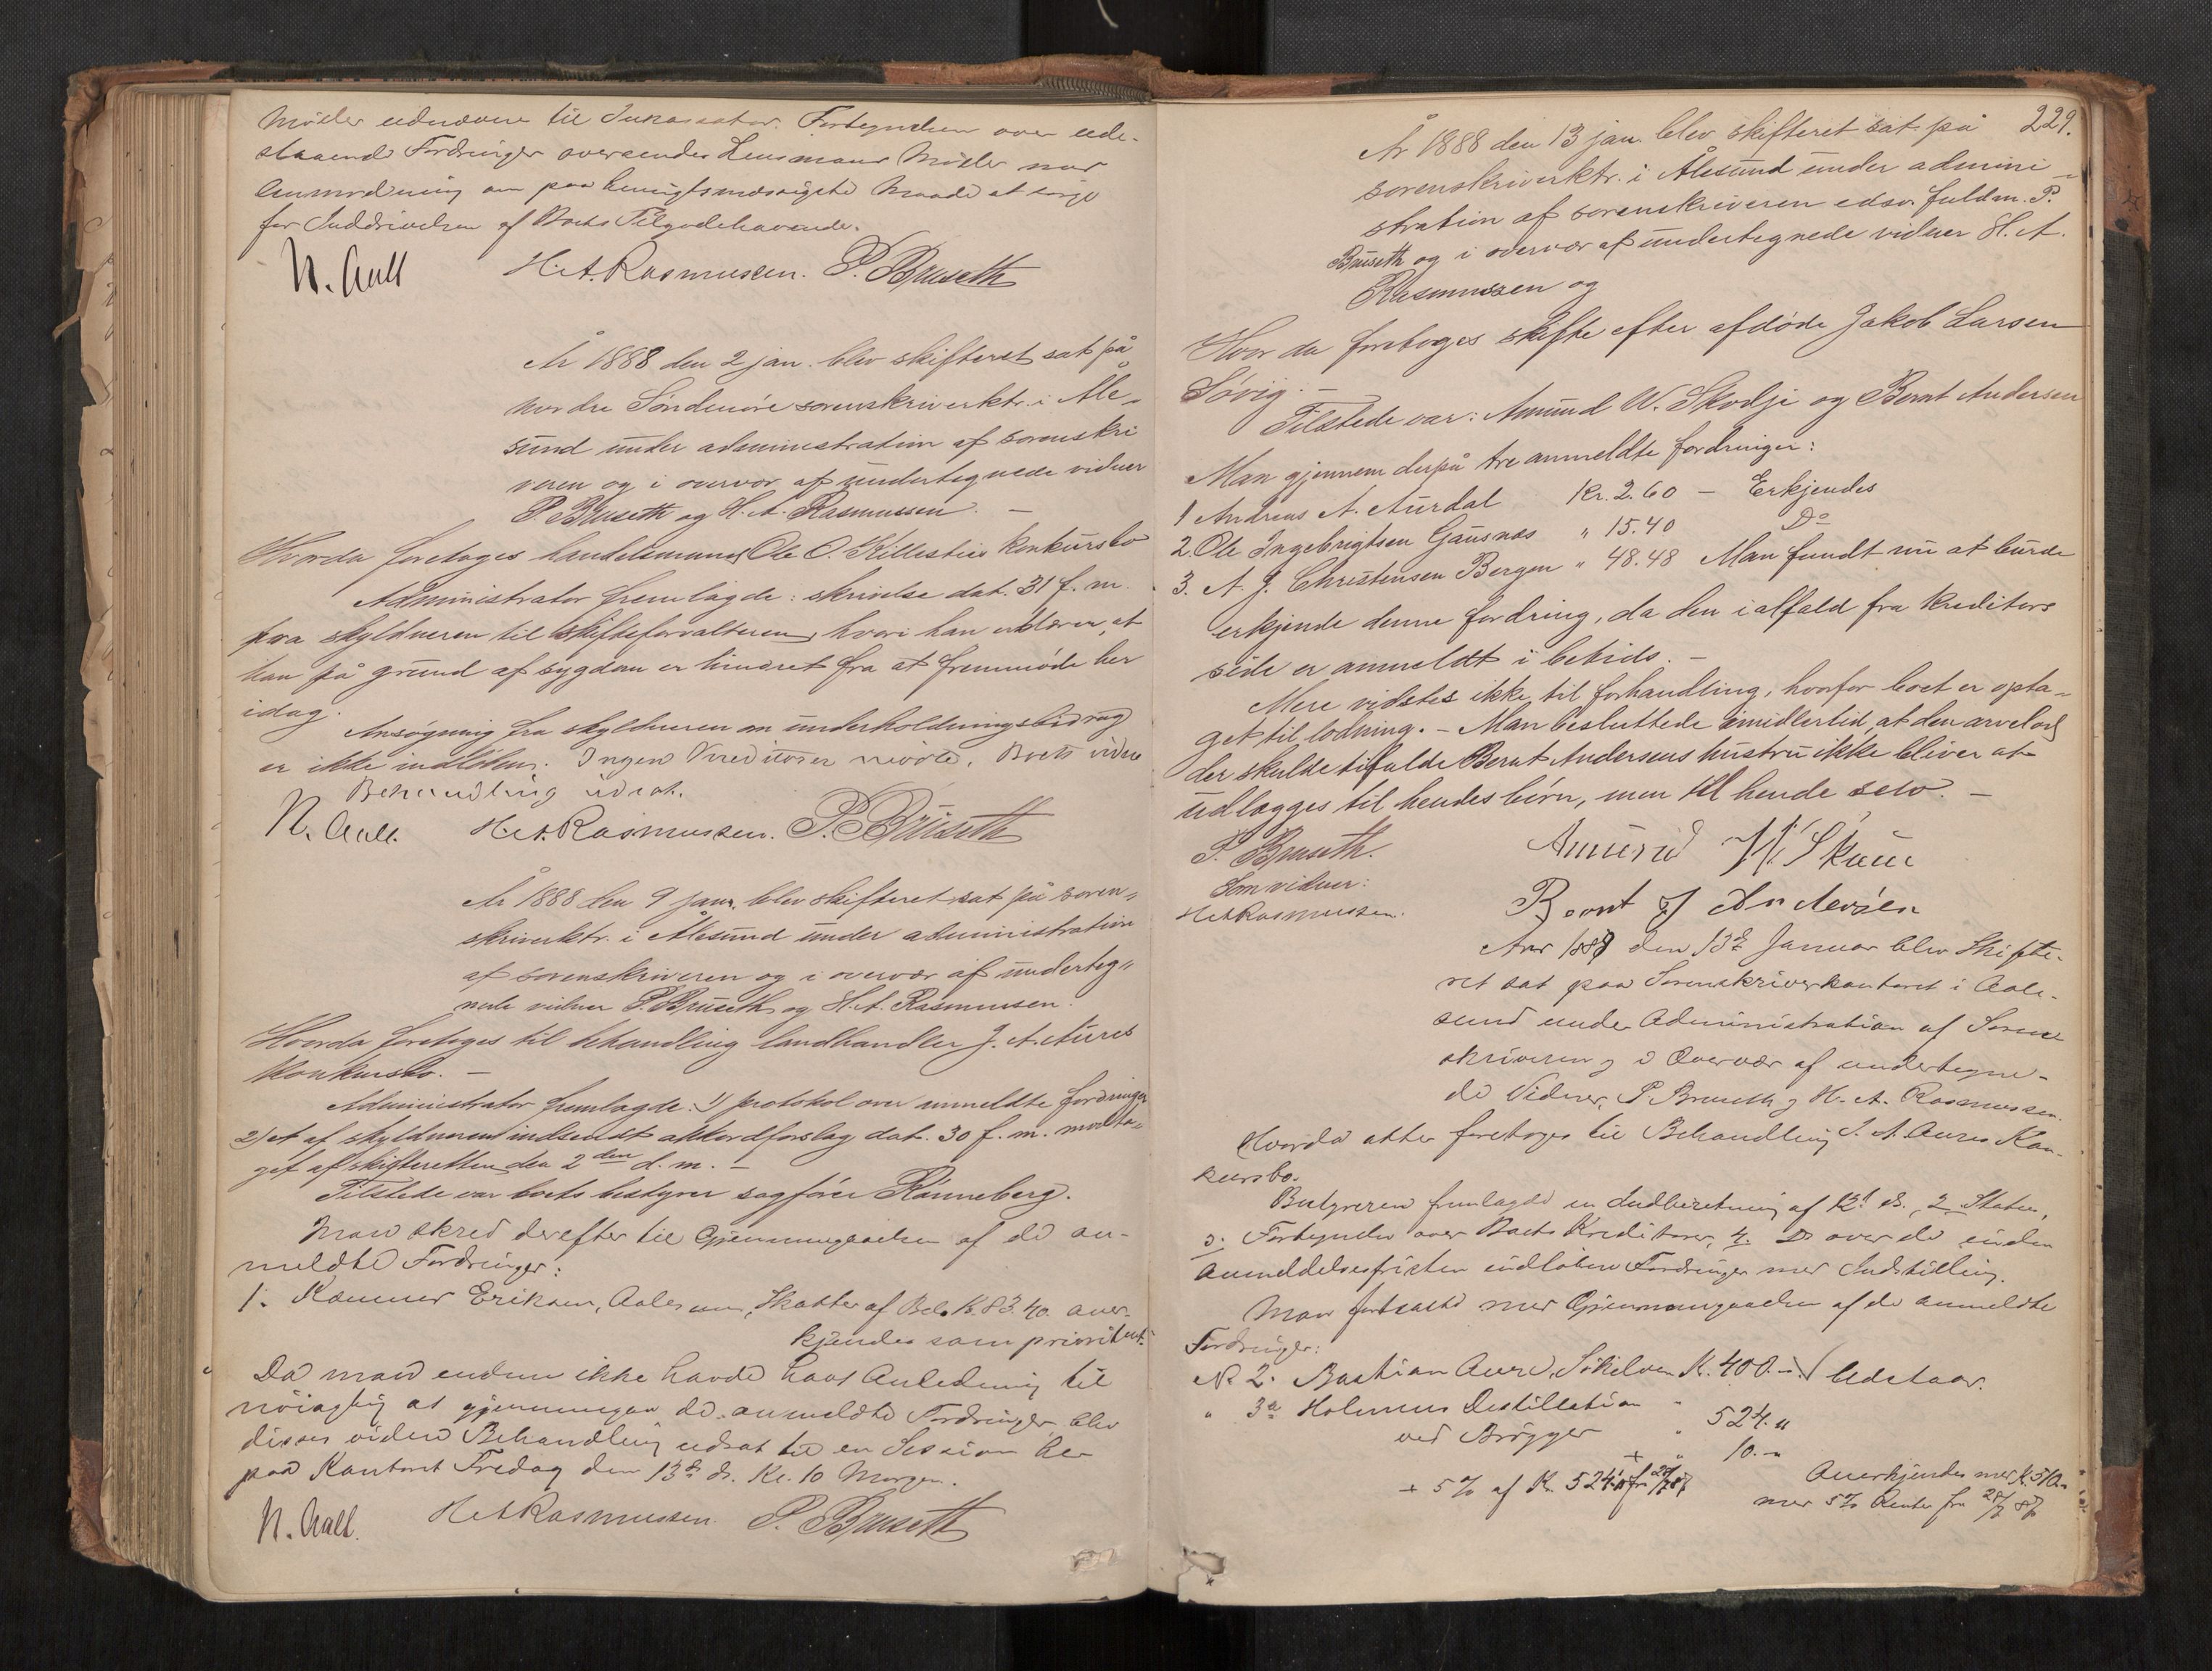 Møller udnævnes til Inkassator. Fortegnelsen over ude-
staaende Fordringer oversendes Lensmand Møller med
Anmodning om paa hensigtsmæssigste Maade at sørge
for Inddrivelsen af Boets Tilgodehavende.
N. Aall H. A. Rasmussen. P. Bruseth
År 1888 den 2 jan. blev skifteret sat på
nordre Søndmøre sorenskriverktr. i Åle-
sund under administration af sorenskri
veren og i overvær af undertegnede vidner
P. Bruseth og H. A. Rasmussen. –
Hvorda foretoges handelsmand Ole O. Killesties konkursbo
Administrator fremlagde: skrivelse dat. 31 f. m.
fra skyldneren til skifteforvalteren, hvori han erklærer, at
han på grund af sygdom er hindret fra at fremmøde her
idag.
Ansøgning fra skyldneren om underholdningsbidrag
er ikke indløben. Ingen Kreditorer mødte. Boets videre
Behandling udsat.
N. Aall. H. A. Rasmussen. P. Bruseth
År 1888 den 9 janr. blev skifteret sat på soren-
skriverktr. i Ålesund under administration
af sorenskriveren og i overvær af underteg-
nede vidner P. Bruseth og H. A. Rasmussen.
Hvorda foretoges til behandling landhandler J. A. Aures
Konkursbo. –
Administrator fremlagde: 1) protokol over anmeldte fordringer
2) et af skyldneren indsendt akkordforslag dat. 30 f. m. modta-
get af skifteretten den 2den d. m. –
Tilstede var boets bestyrer sagfører Rønneberg.
Man skred derefter til Gjennemgaaelsen af de an-
meldte Fordringer:
1. Kæmner Eriksen, Aalesund, Skatter af Bel. Kr. 83.40 aner-
kjendes som prioritet.
Da man endnu ikke havde havt Anledning til
nøiagtig at gjennemgaa de anmeldte Fordringer blev
disses videre Behandling udsat til en Session her
paa Kontoret Fredag den 13de ds. Kl. 10 Morgen.
N. Aall. H. A. Rasmussen. P. Bruseth
229.
År 1888 den 13 jan. blev skifteret sat på
sorenskriverktr. i Ålesund under admini-
stration af sorenskriveren edsv. fuldm. P.
Bruseth og i overvær af undertegnede vidner H. A.
Rasmussen og
Hvor da foretoges skifte efter afdøde Jakob Larsen
Søvig. –
Tilstede var: Amund W. Skodje og Bernt Andersen
Man gjennem derpå tre anmeldte fordringer:
1 Andreas A. Aurdal Kr. 2.60 – Erkjendes
2. Ole Ingebrigtsen Gausnæs " 15.40 Do
3. A. J. Christensen Bergen " 48.48 Man fandt nu at burde
erkjende denne fordring, da den ialfald fra kreditors
side er anmeldt i betids. –
Mere vidstes ikke til forhandling, hvorfor boet er opta-
get til lodning. – Man besluttede imidlertid, at den arvelod
der skulde tilfalde Bernt Andersens hustru ikke bliver at
udlægges til hendes børn, men til hende selv. –
P. Bruseth. Amund W Skaue
Som vidner:
H. A. Rasmussen. Bernt J Andersen
Aar 1888 den 13de Januar blev Skifte-
ret sat paa Sorenskriverkontoret i Aale-
sund under Administration af Soren
skriveren og i Overvær af undertegne-
de Vidner, P. Bruseth og H. A. Rasmussen.
Hvorda atter foretoges til Behandling J. A. Aures Kon-
kursbo.
Bestyreren fremlagde en Indberetning af 12t ds., 2. Status,
3. Fortegnelse over Boets Kreditorer, 4. Do over de inden
Anmeldelsesfristen indløbne Fordringer med Indstilling.
Man fortsatte med Gjennemgaaelsen af de anmeldte
Fordringer:
No 2. Bastian Aure, Søkelven K. 400.- Udstaar.
" 3a Holmens Destillation
ved Brøgger " 524. "
+ " 10. "
+ 5% af Kr. 524. " fr 28/7 87 Anerkjendes med K. 510.
med 5% Rente fra 28/7 87